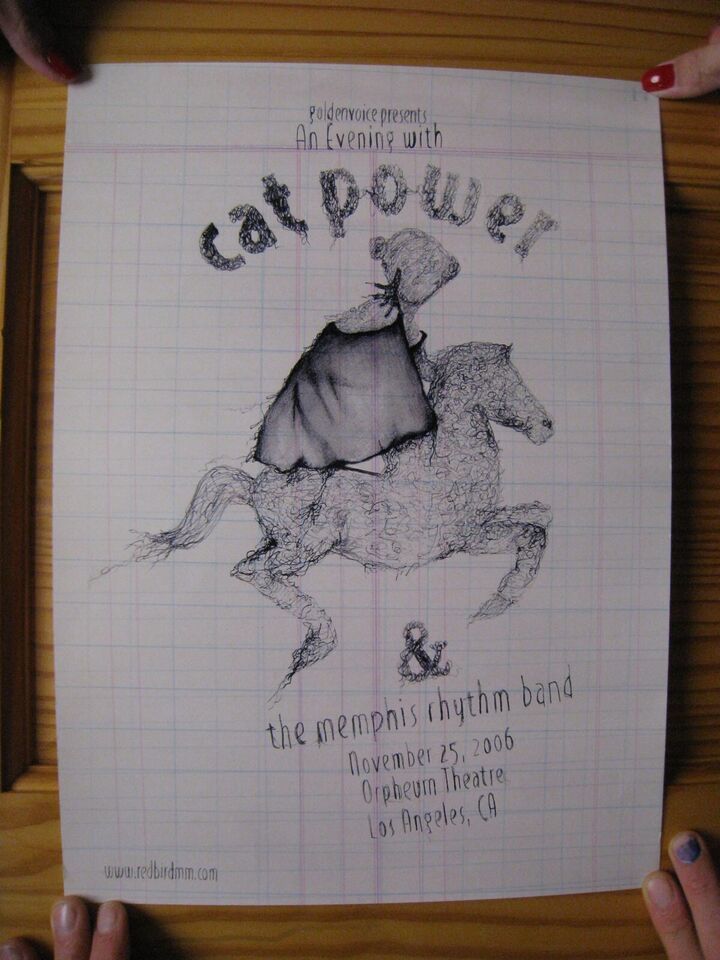 goldenvoice presents
An Evening with
cat power
&
the memphis rhythm band
November 25, 2006
Orpheum Theatre
Los Angeles, CA
www.redbirdmm.com